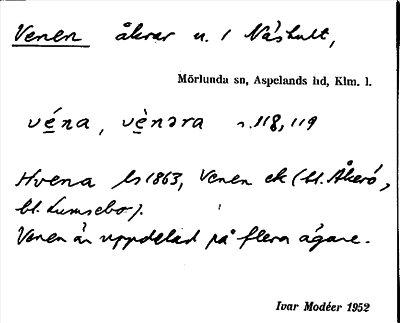 Venen åkrar n. 1 Näshult,
Mörlunda sn, Aspelands hd, Klm. l.
véna, vènəra s. 118, 119
Hvena ls 1863, Venen ek (bl. Åkerö,
bl. Lumsebo).
Venen är uppdelad på flera ägare.
Ivar Modéer 1952